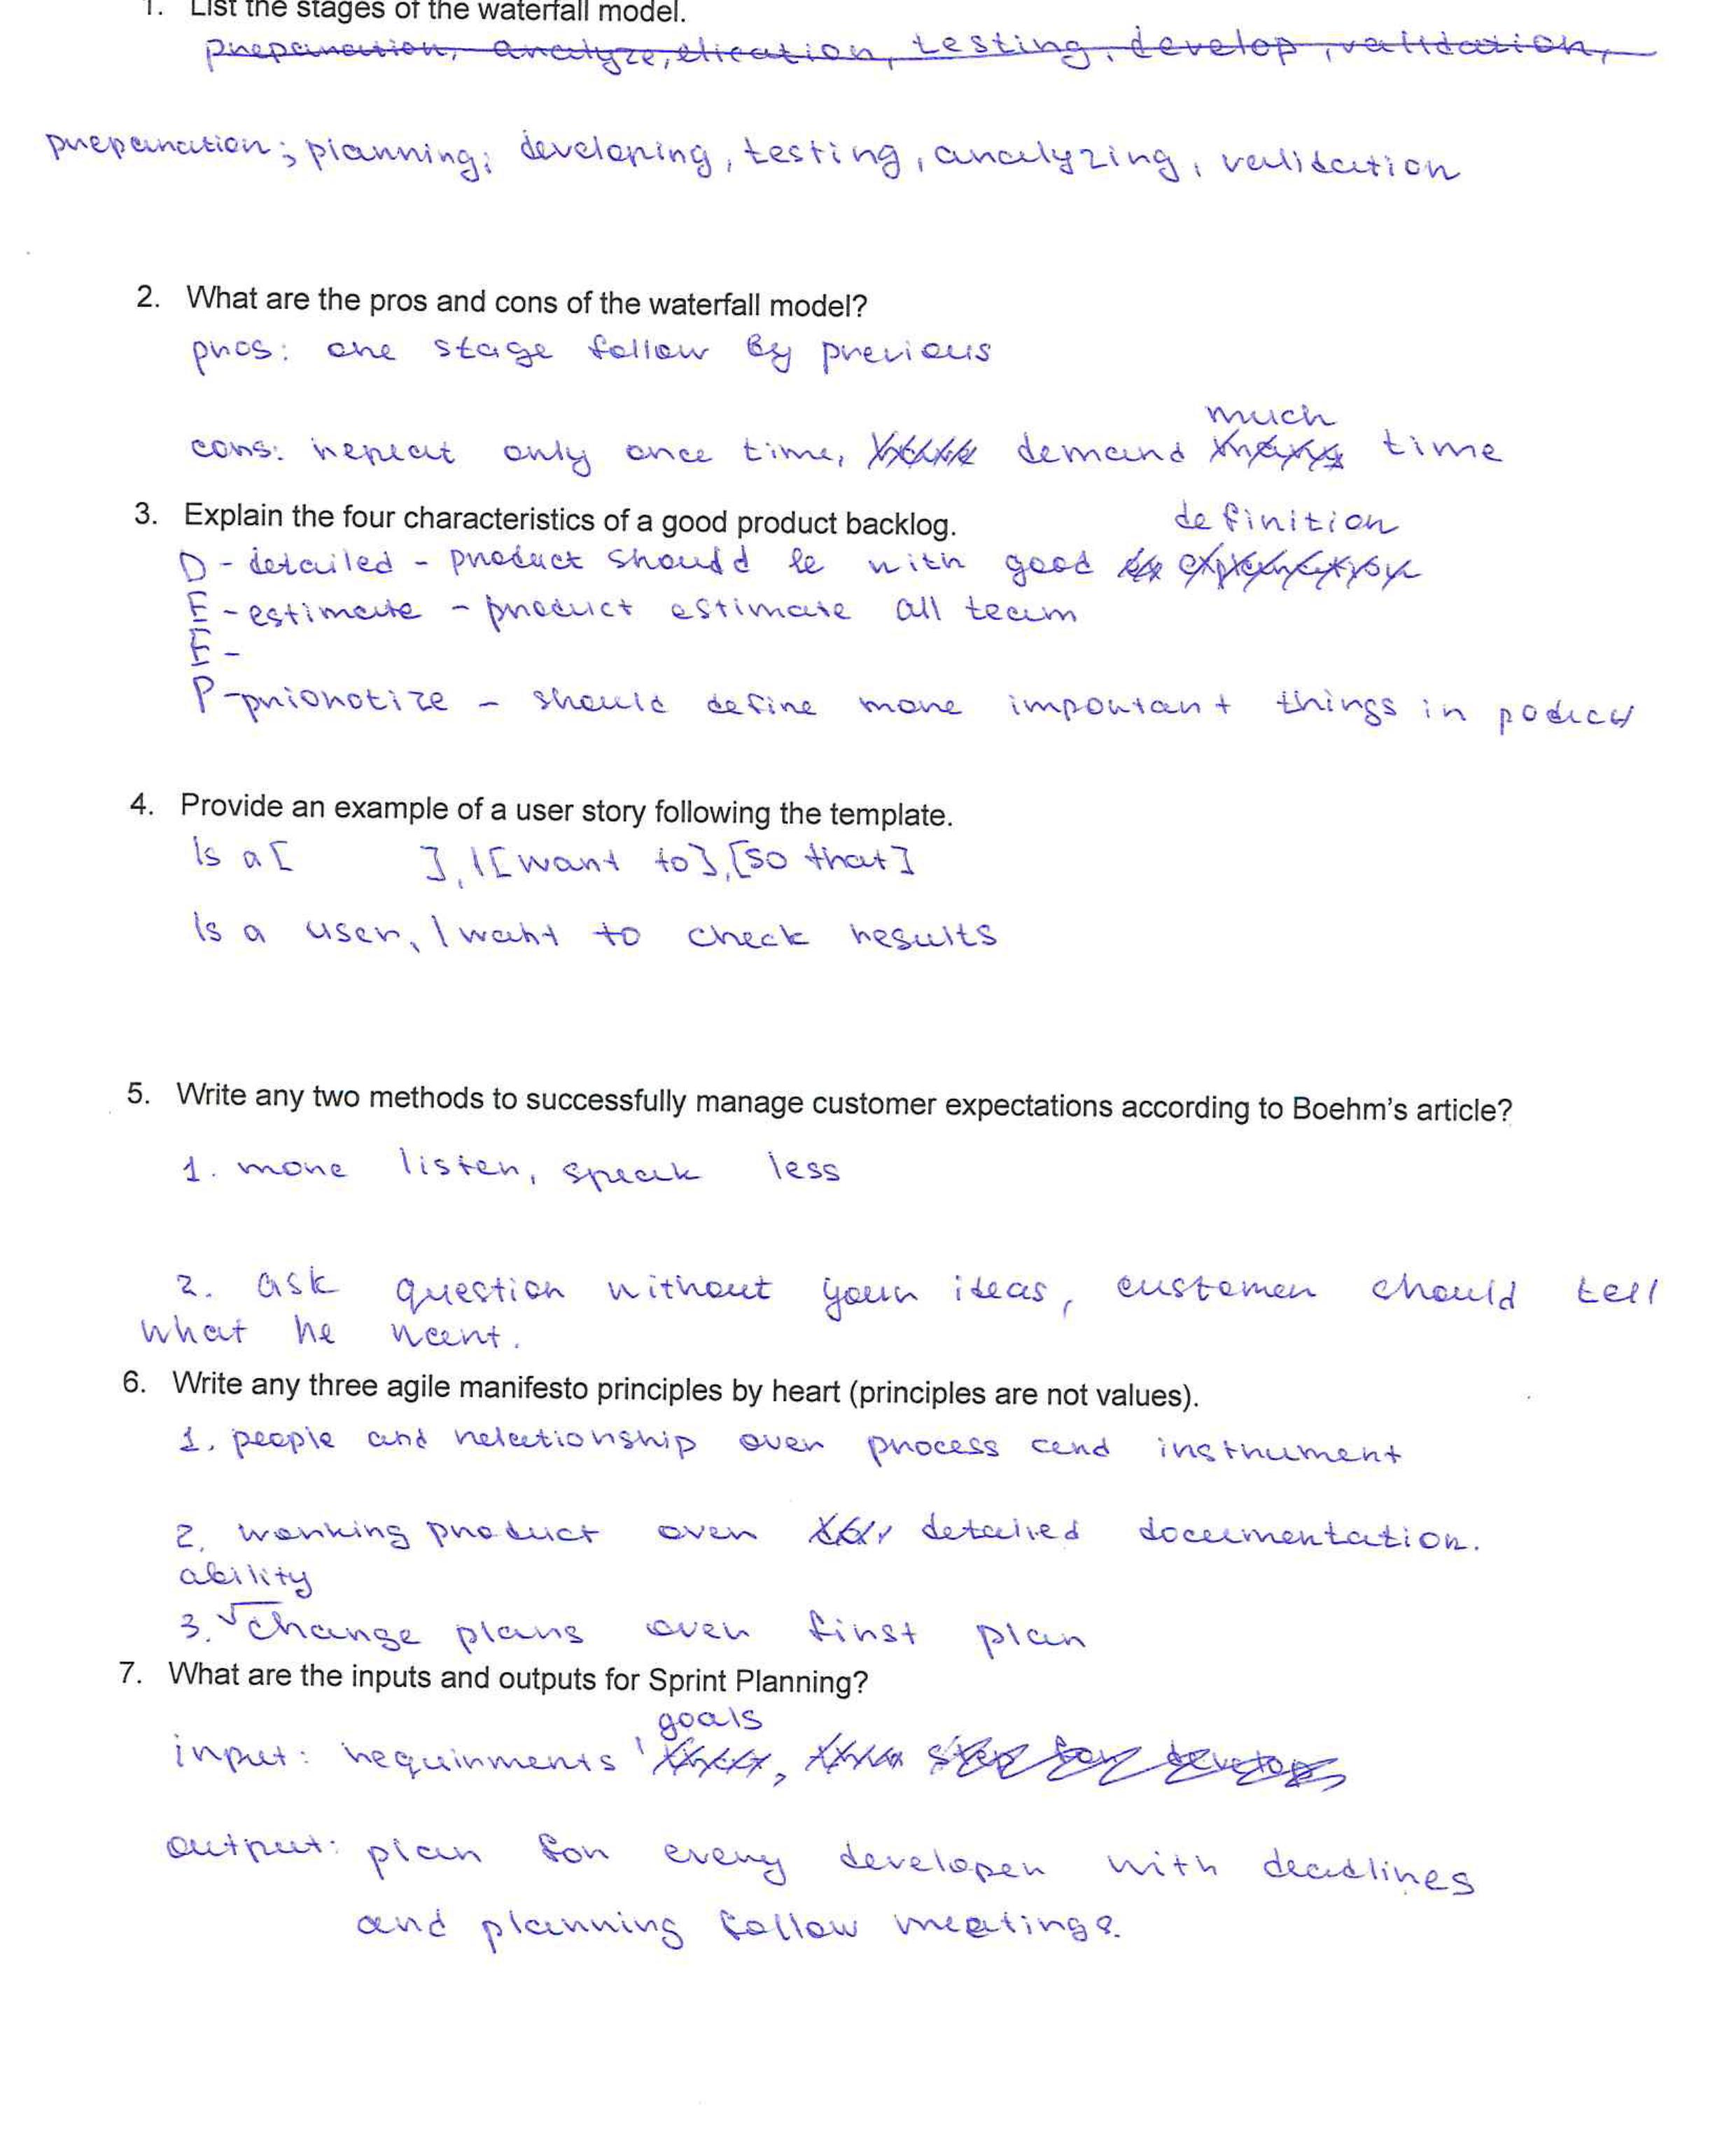 1. List the stages of the waterfall model.
preparation, analyze, elication, testing, develop, validation,
preparation; planning; developing, testing, analyzing, validation
2. What are the pros and cons of the waterfall model?
pros: one stage follow by previous
much
cons: repeat only once time, demand many time
3. Explain the four characteristics of a good product backlog.
definition
D - detailed - product should be with good ex explanation
E - estimate - product estimate all team
E -
P - priorotize - should define more important things in poduct
4. Provide an example of a user story following the template.
Is a [ ], I [want to], [so that]
Is a user, I want to check results
5. Write any two methods to successfully manage customer expectations according to Boehm's article?
1. more listen, speak less
2. ask question without your ideas, customer should tell
what he want.
6. Write any three agile manifesto principles by heart (principles are not values).
1. people and relationship over process and instrument
2. working product over detailed documentation.
ability
3. change plans over first plan
7. What are the inputs and outputs for Sprint Planning?
goals
input: requirments, step for develop
output: plan for every developer with deadlines
and planning follow meetings.